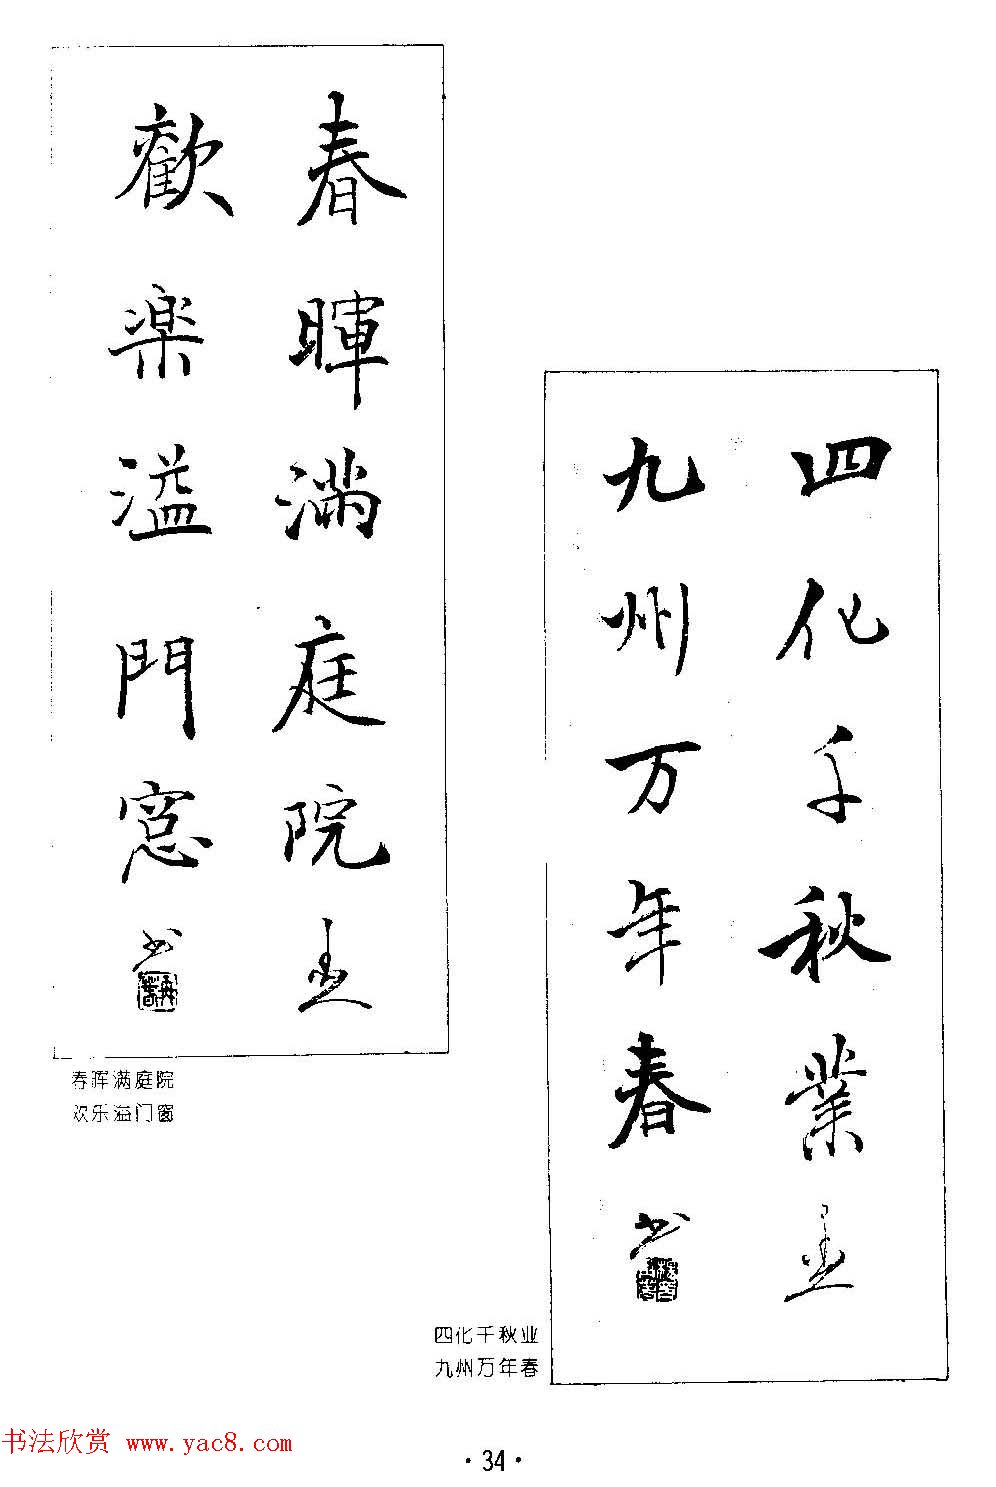 春暉滿庭院
歡楽溢門窓
书
春晖满庭院
欢乐溢门窗
四化千秋業
九州万年春
书
四化千秋业
九州万年春
书法欣赏 www.yac8.com
·34·